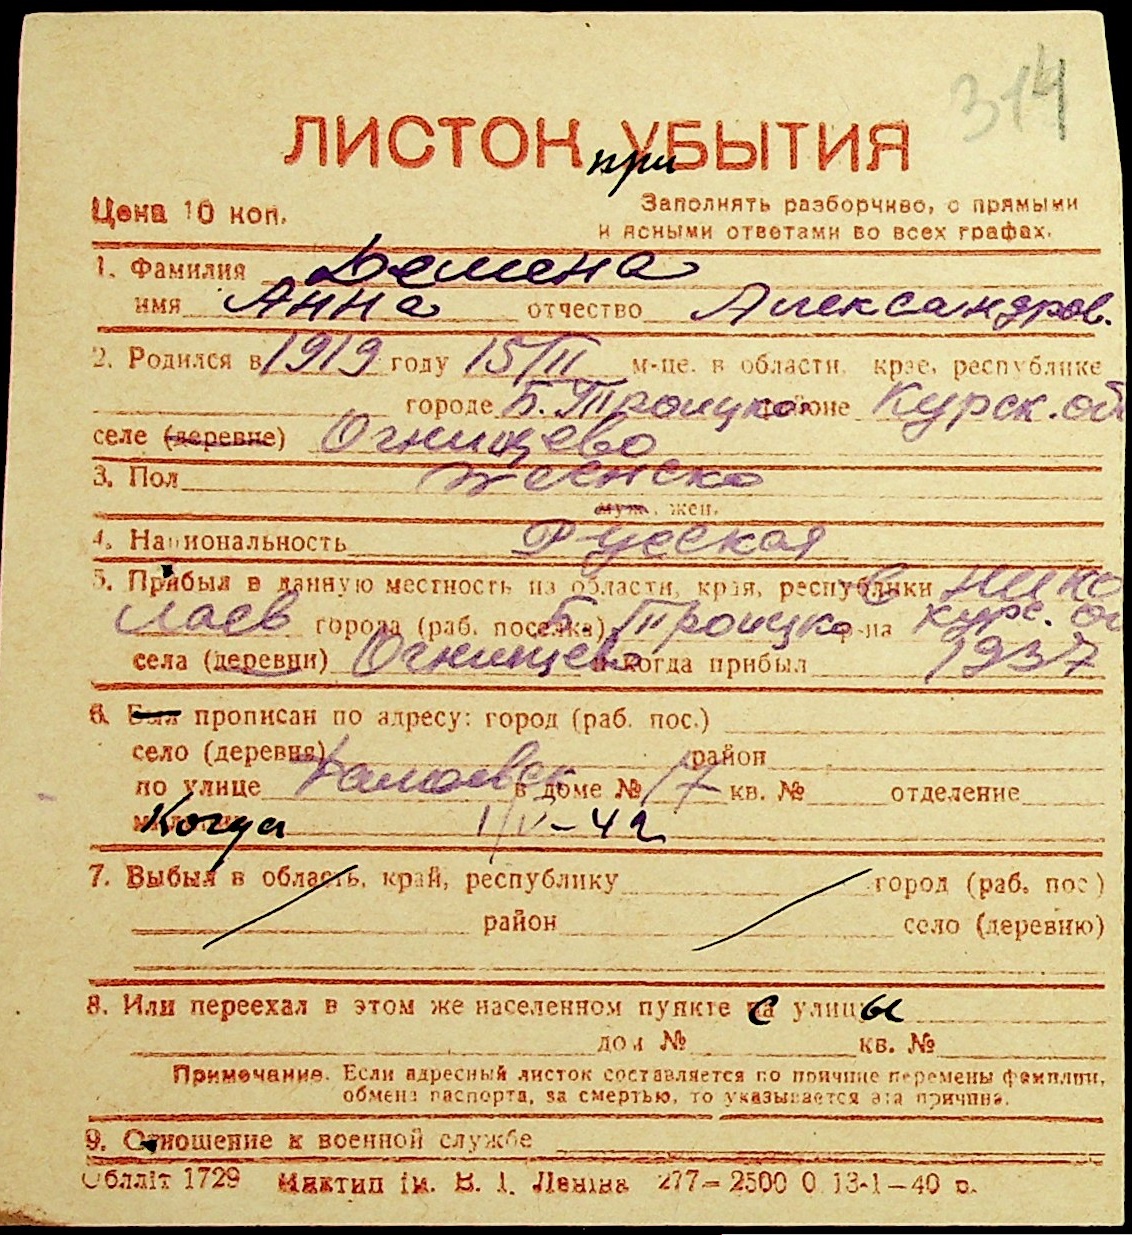 314
ЛИСТОК при УБЫТИЯ
Цена 10 коп.
Заполнять разборчиво, с прямыми
и ясными ответами во всех графах.
1. Фамилия Демена
имя Анна отчество Александров.
2. Родился в 1919 году 15/II м-це. в области, крае, республике
городе Б. Троицко районе Курск. об
селе (деревне) Огнищево
3. Пол женско
муж., жен.
4. Национальность Русская
5. Прибыл в данную местность из области, края, республики в Нико
лаев города (раб. поселка) Б. Троицко р-на курс. об
села (деревни) Огнищево и когда прибыл 1937
6. Был прописан по адресу: город (раб. пос.)
село (деревня) район
по улице в доме № 17 кв. № отделение
Когда 1/V-42
7. Выбыл в область, край, республику город (раб. пос)
район село (деревню)
8. Или переехал в этом же населенном пункте с улицы
дом № кв. №
Примечание. Если адресный листок составляется по причине перемены фамилии,
обмена паспорта, за смертью, то указывается эта причина.
9. Отношение к военной службе
Обллiт 1729 Миктип iм. В. I. Ленiна 277—2500 0 13-1—40 р.